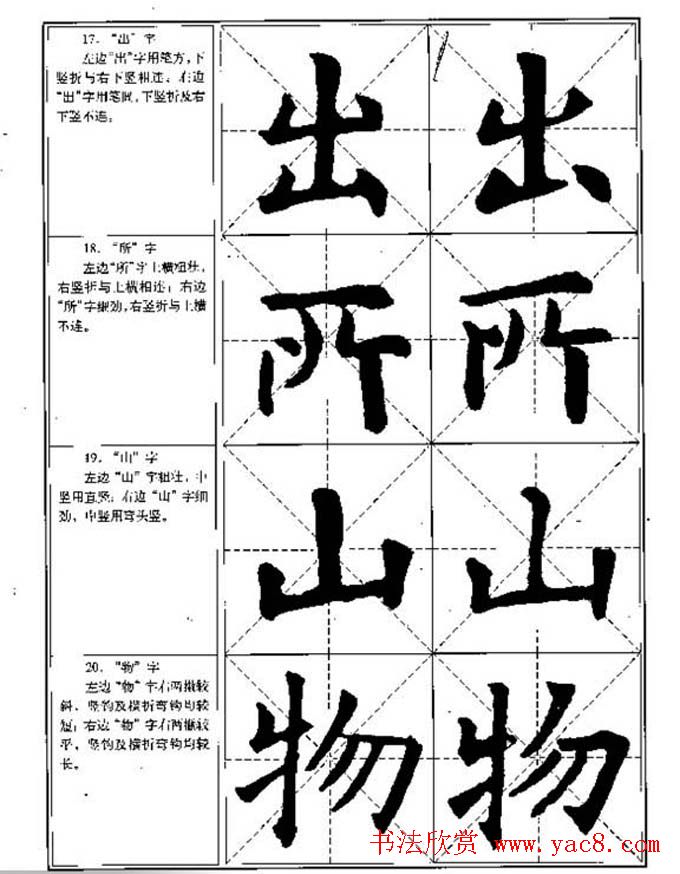 17. “出”字
左边“出”字用笔方，下
竖折与右下竖相连。右边
“出”字用笔圆，下竖折及右
下竖不连。
出 出
18. “所”字
左边“所”字上横粗壮，
右竖折与上横相连；右边
“所”字细劲，右竖折与上横
不连。
所 所
19. “山”字
左边“山”字粗壮，中
竖用直竖；右边“山”字细
劲，中竖用弯头竖。
山 山
20. “物”字
左边“物”字右两撇较
斜，竖钩及横折弯钩均较
短；右边“物”字右两撇较
平，竖钩及横折弯钩均较
长。
物 物
书法欣赏 www.yac8.com